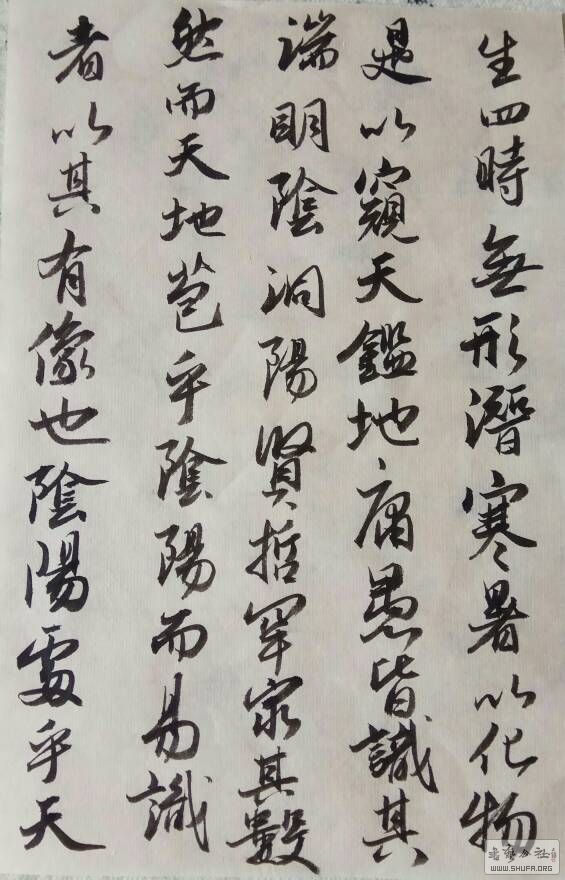 生四時無形潛寒暑以化物
是以窺天鑑地庸愚皆識其
端明陰洞陽賢哲罕窮其數
然而天地苞乎陰陽而易識
者以其有像也陰陽處乎天
WWW.SHUFA.ORG